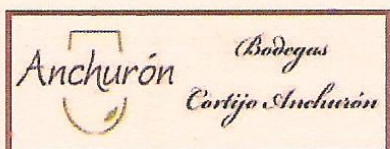 Anchurón
Bodegas
Cortijo Anchurón